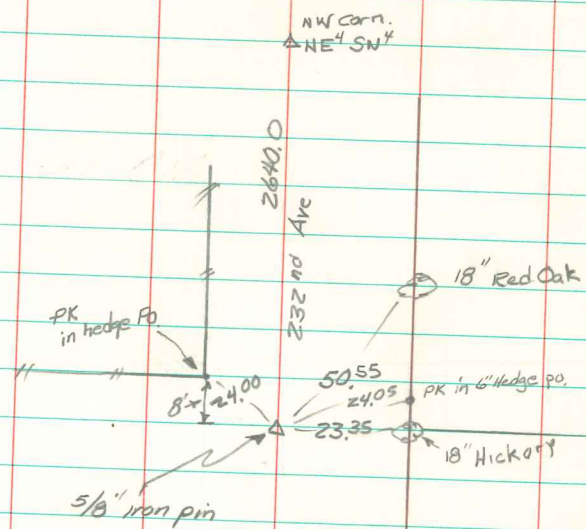 NW Corn.
NE⁴ SW⁴
2640.0
232 nd Ave
18" Red Oak
PK
in hedge Po.
50.55
24.05
PK in 6" Hedge po.
24.00
8'±
23.35
18" Hickory
5/8" iron pin